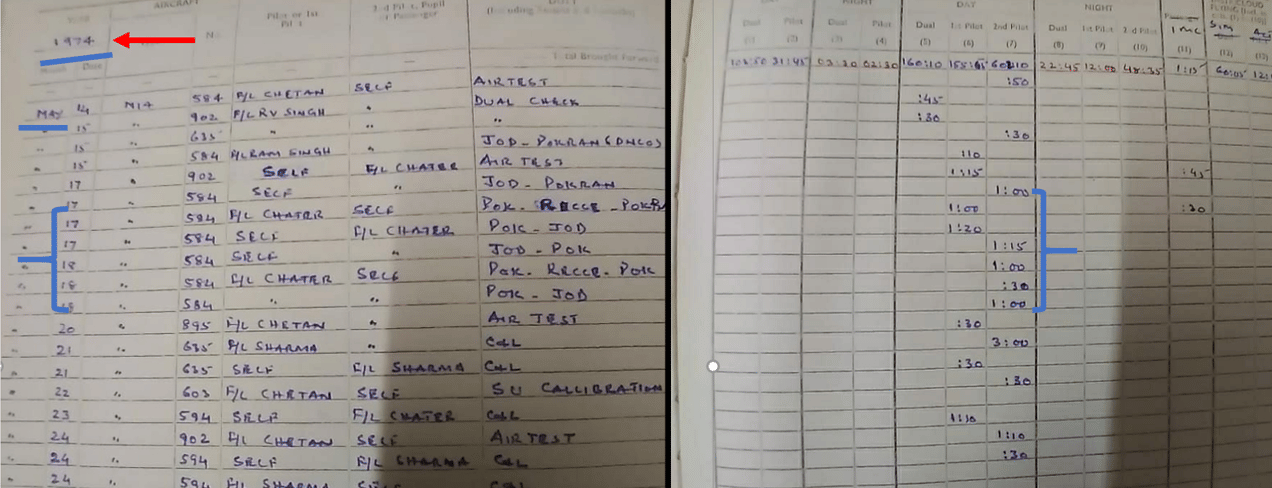 YEAR AIRCRAFT Pilot or 1st Pilot 2nd Pilot, Pupil or Passenger
1974 No.
Month Date Total Brought Forward
MAY 14 M14 584 F/L CHETAN SELF AIR TEST
" 15 " 902 F/L RV SINGH " DUAL CHECK
" 15 " 635 " " "
" 15 " 584 F/L RAM SINGH " JOD - POKRAN
" 17 " 902 SELF F/L CHATER AIR TEST
" 17 " 584 SELF " JOD - POKRAN
" 17 " 584 F/L CHATER SELF POK - RECCE - POK
" 17 " 584 SELF F/L CHATER POK - JOD
" 18 " 584 SELF " JOD - POK
" 18 " 584 F/L CHATER SELF POK - RECCE - POK
" 18 " 584 " " POK - JOD
" 20 " 895 F/L CHETAN " AIR TEST
" 21 " 635 F/L SHARMA " C&L
" 21 " 635 SELF F/L SHARMA C&L
" 22 " 603 F/L CHETAN SELF SU CALLIBRATION
" 23 " 594 SELF F/L CHATER C&L
" 24 " 902 F/L CHETAN SELF AIR TEST
" 24 " 594 SELF F/L SHARMA C&L
" 24 " 594 F/L SHARMA SELF C&L
NIGHT DAY NIGHT
Dual Pilot Dual Pilot Dual 1st Pilot 2nd Pilot Dual 1st Pilot 2nd Pilot IMC SIM
(1) (2) (3) (4) (5) (6) (7) (8) (9) (10) (11) (12) (13)
31:45 02:30 160:10 22:45 12:00 48:35 1:15
:50
:45
:30
:30
1:10
1:15 :45
1:00
1:00 :30
1:20
1:15
1:00
:30
1:00
:30
3:00
:30
:30
1:10
1:10
:30